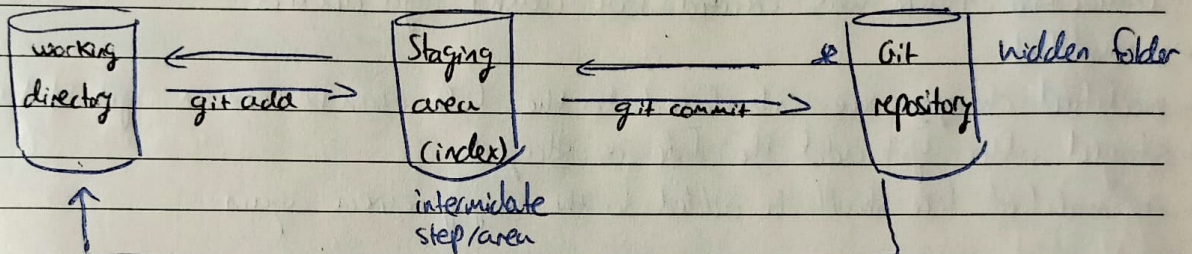 working
directory
git add
Staging
area
(index)
intermidate
step/area
git commit
* Git
repository
hidden folder